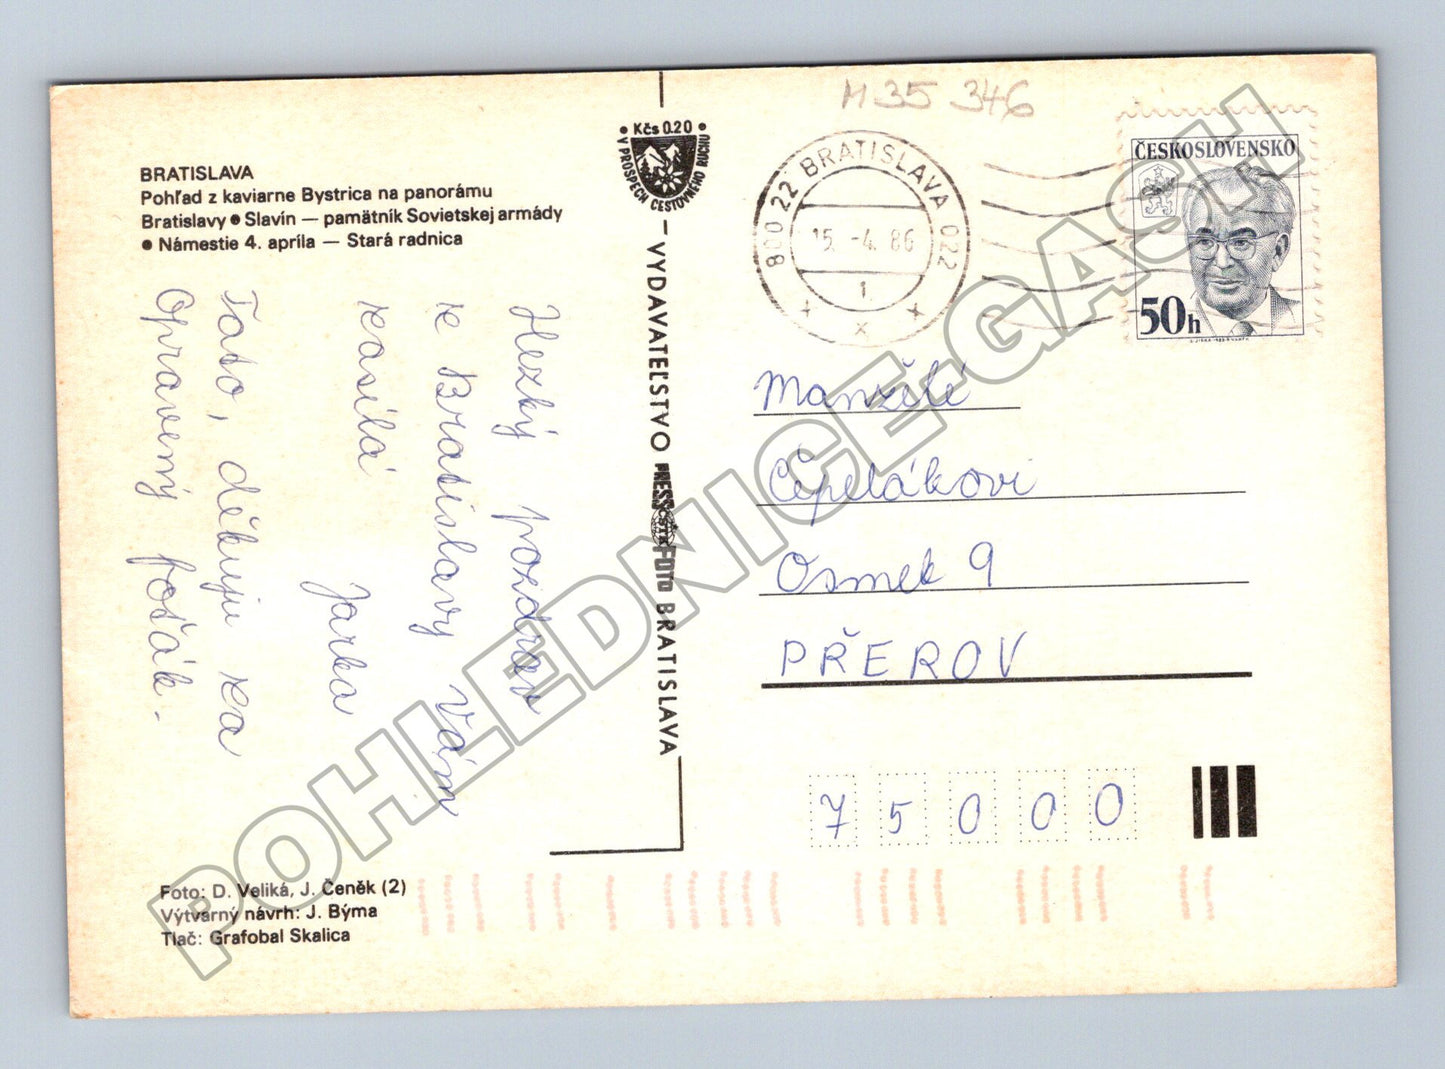 M35 346
BRATISLAVA
Pohľad z kaviarne Bystrica na panorámu
Bratislavy ● Slavín — pamätník Sovietskej armády
● Námestie 4. apríla — Stará radnica
Hezký pozdrav
z Bratislavy Vám
zasílá
Jarka
Tato, děkuju za
Opravený foťák.
● Kčs 0.20 ●
V PROSPECH CESTOVNÉHO RUCHU
VYDAVATEĽSTVO PRESSFOTO BRATISLAVA
ČSTK
800 22 BRATISLAVA 022
15. -4. 86
1
x
ČESKOSLOVENSKO
50h
Manželé
Čepelákovi
Osmek 9
PŘEROV
75000
Foto: D. Veliká, J. Čeněk (2)
Výtvarný návrh: J. Býma
Tlač: Grafobal Skalica
POHLEDNICE-GASH